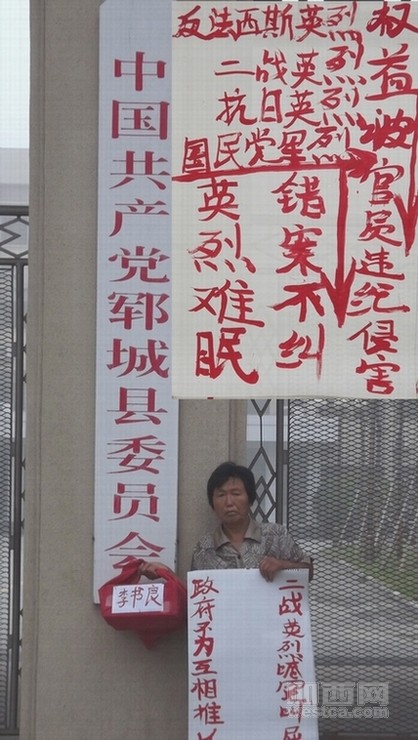 中国共产党郓城县委员会
反法西斯英烈
二战英烈
抗日英烈
国民党 烈
权益被官员违纪侵害
错案不纠
英烈难眠
李书良
二战英烈
政府不为互相推
西网
westca.com